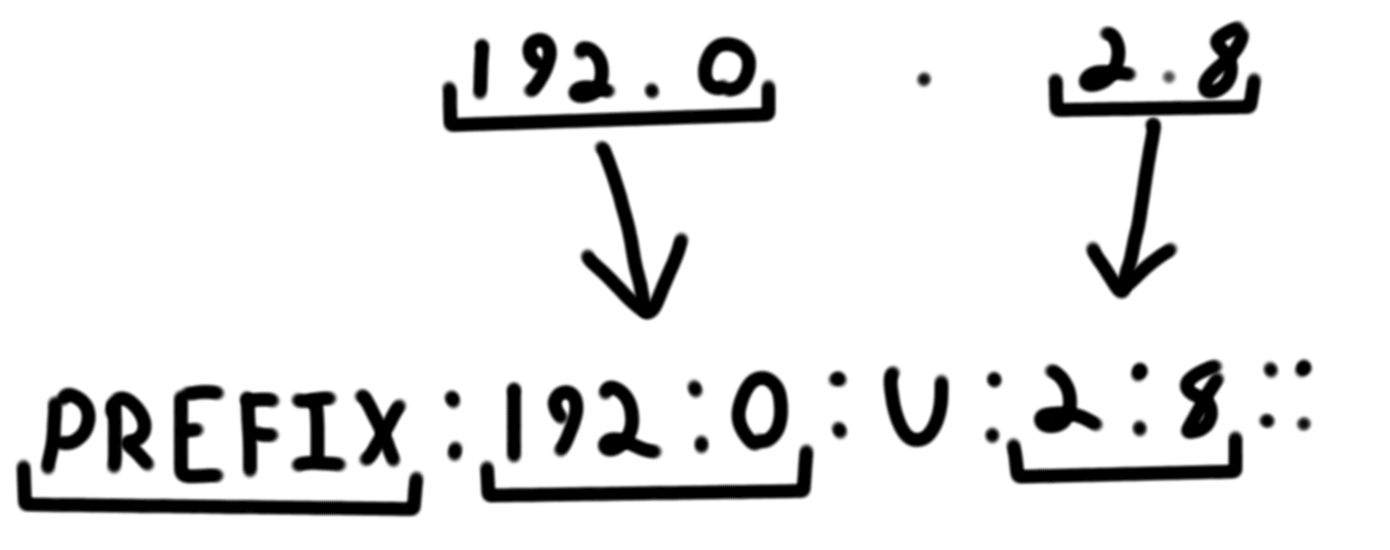 192.0 . 2.8
PREFIX:192:0:U:2:8::